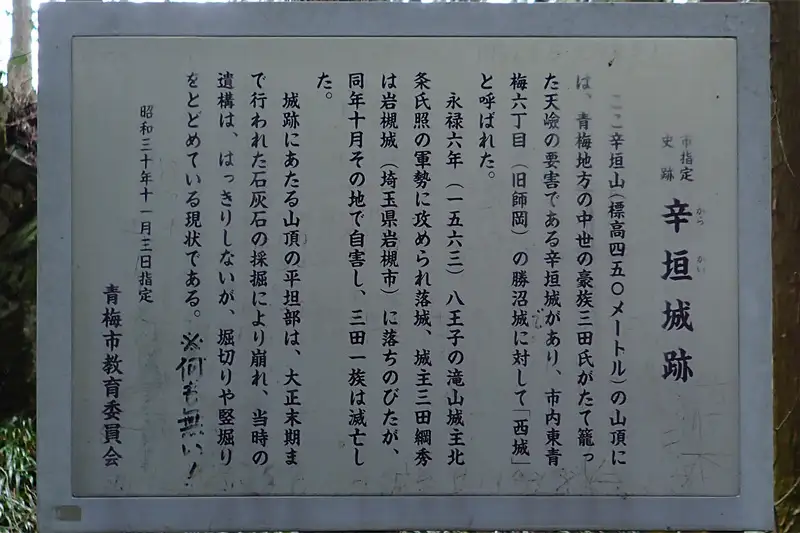 市指定
史跡
辛垣城跡
からかい
ここ辛垣山(標高四五〇メートル)の山頂に
は、青梅地方の中世の豪族三田氏がたて籠っ
た天嶮の要害である辛垣城があり、市内東青
梅六丁目(旧師岡)の勝沼城に対して「西城」
と呼ばれた。
永禄六年(一五六三)八王子の滝山城主北
条氏照の軍勢に攻められ落城、城主三田綱秀
は岩槻城(埼玉県岩槻市)に落ちのびたが、
同年十月その地で自害し、三田一族は滅亡し
た。
城跡にあたる山頂の平坦部は、大正末期ま
で行われた石灰石の採掘により崩れ、当時の
遺構は、はっきりしないが、堀切りや竪堀り
をとどめている現状である。※何も無い!
昭和三十年十一月三日指定
青梅市教育委員会